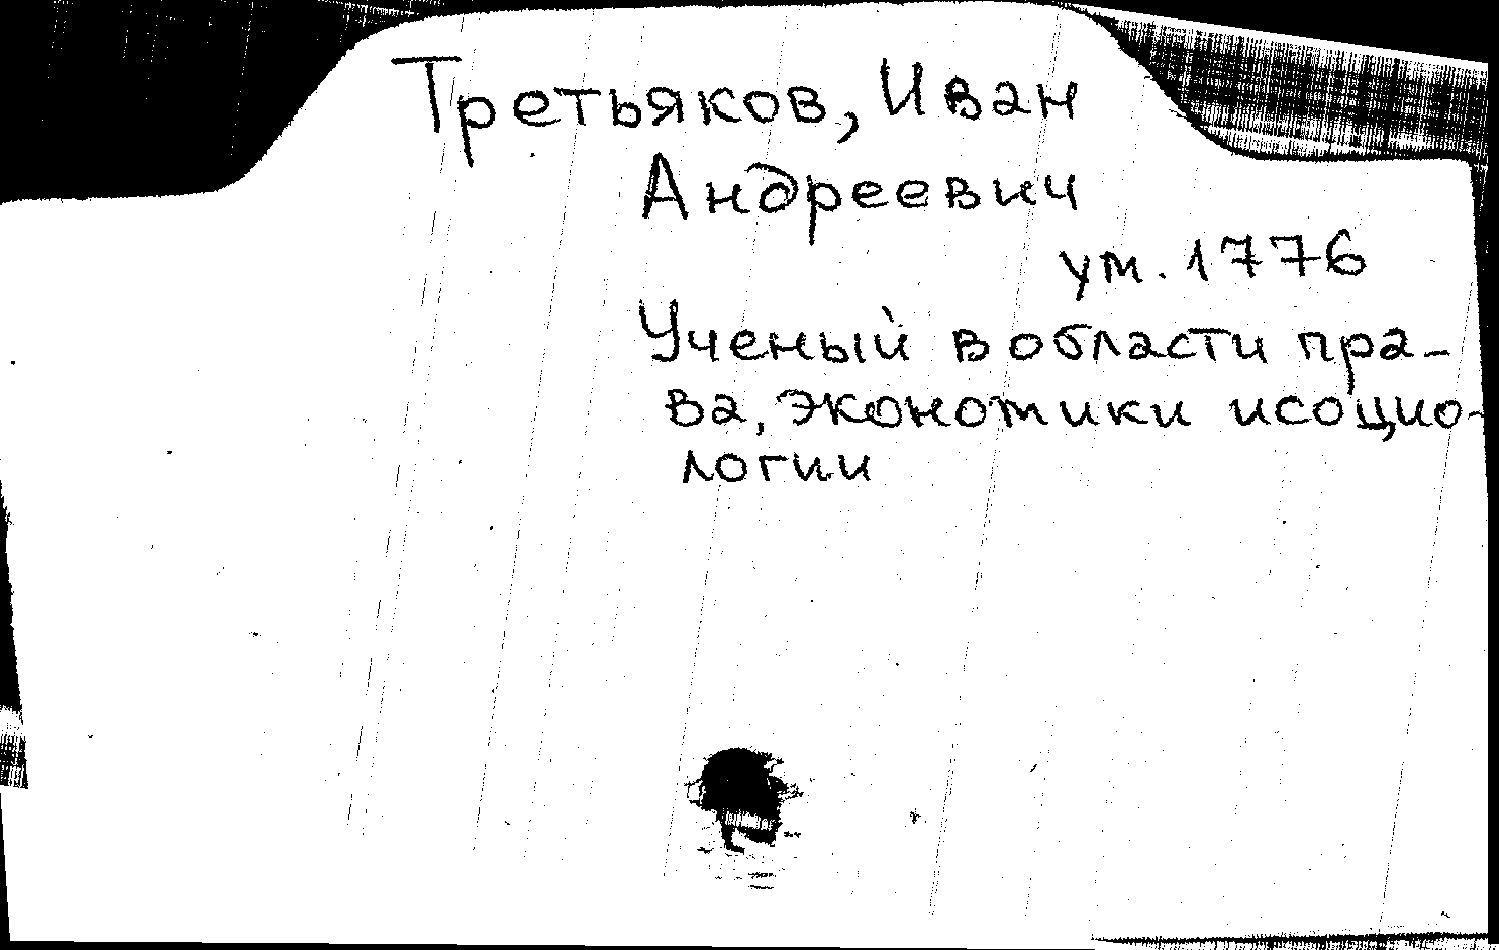 Третьяков, Иван
Андреевич
ум. 1776
Ученый в области пра-
ва, экономики и социо-
логии